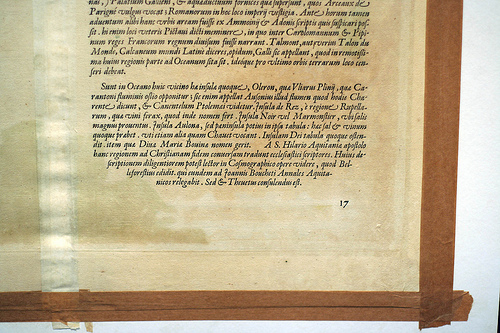 nai, & Palatium Galieni, & aquaeductium fornices qui supersunt, quos Arceaux de
Parigné vulgus vocat: Romanorum in hoc loco imperij vestigia. Ante horum tamen
aduentum alibi hanc vrbis aream fuisse ex Ammonij & Adonis scriptis quis suspicari pos-
sit. hi enim loci veteris Pictaui dicti meminere, in quo inter Carolomannum & Pipi-
num reges Francorum regnum diuisum fuisse narrant. Talmont, aut verius Talon du
Monde, Calcaneum mundi Latinè diceres, opidum, Galli sic appellant, quòd in remotissi-
ma huius regionis parte ad Oceanum sita sit, ideòque pro vltimo orbis terrarum loco cen-
seri debeat.
Sunt in Oceano huic vicino hæ insulæ quoque, Oleron, quæ Vliarus Plinij, quæ Ca-
rantoni fluminis ostio opponitur: sic enim appellat Ausonius illud flumen quod hodie Cha-
rente dicunt, & Canentelum Ptolemæi videtur. Insula de Rez, è regione Rupella-
rum, quæ vini ferax, quod inde nomen fert. Insula Noir vel Marmonstier, vbi salis
magnus prouentus. Insula Aulona, sed peninsula potius in ipsa tabula: hæc sal & vinum
quoque præbet. vti etiam alia quam Chauet vocant. Insulam Dei tabula quoque osten-
dit. item quæ Diuæ Mariæ Bouinæ nomen gerit. A S. Hilario Aquitaniæ apostolo
hanc regionem ad Christianam fidem conuersam tradunt ecclesiastici scriptores. Huius de-
scriptionem diligentiorem potest lector in Cosmographico opere videre, quod Bel-
leforestius edidit. qui eundem ad Joannis Boucheti Annales Aquita-
nicos relegabit. Sed & Theuetus consulendus est.
17